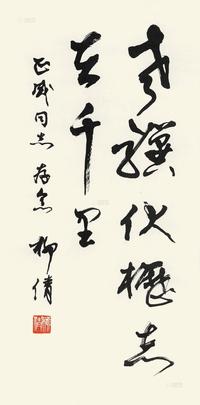 老骥伏櫪志
在千里
正成同志存念 柳倩